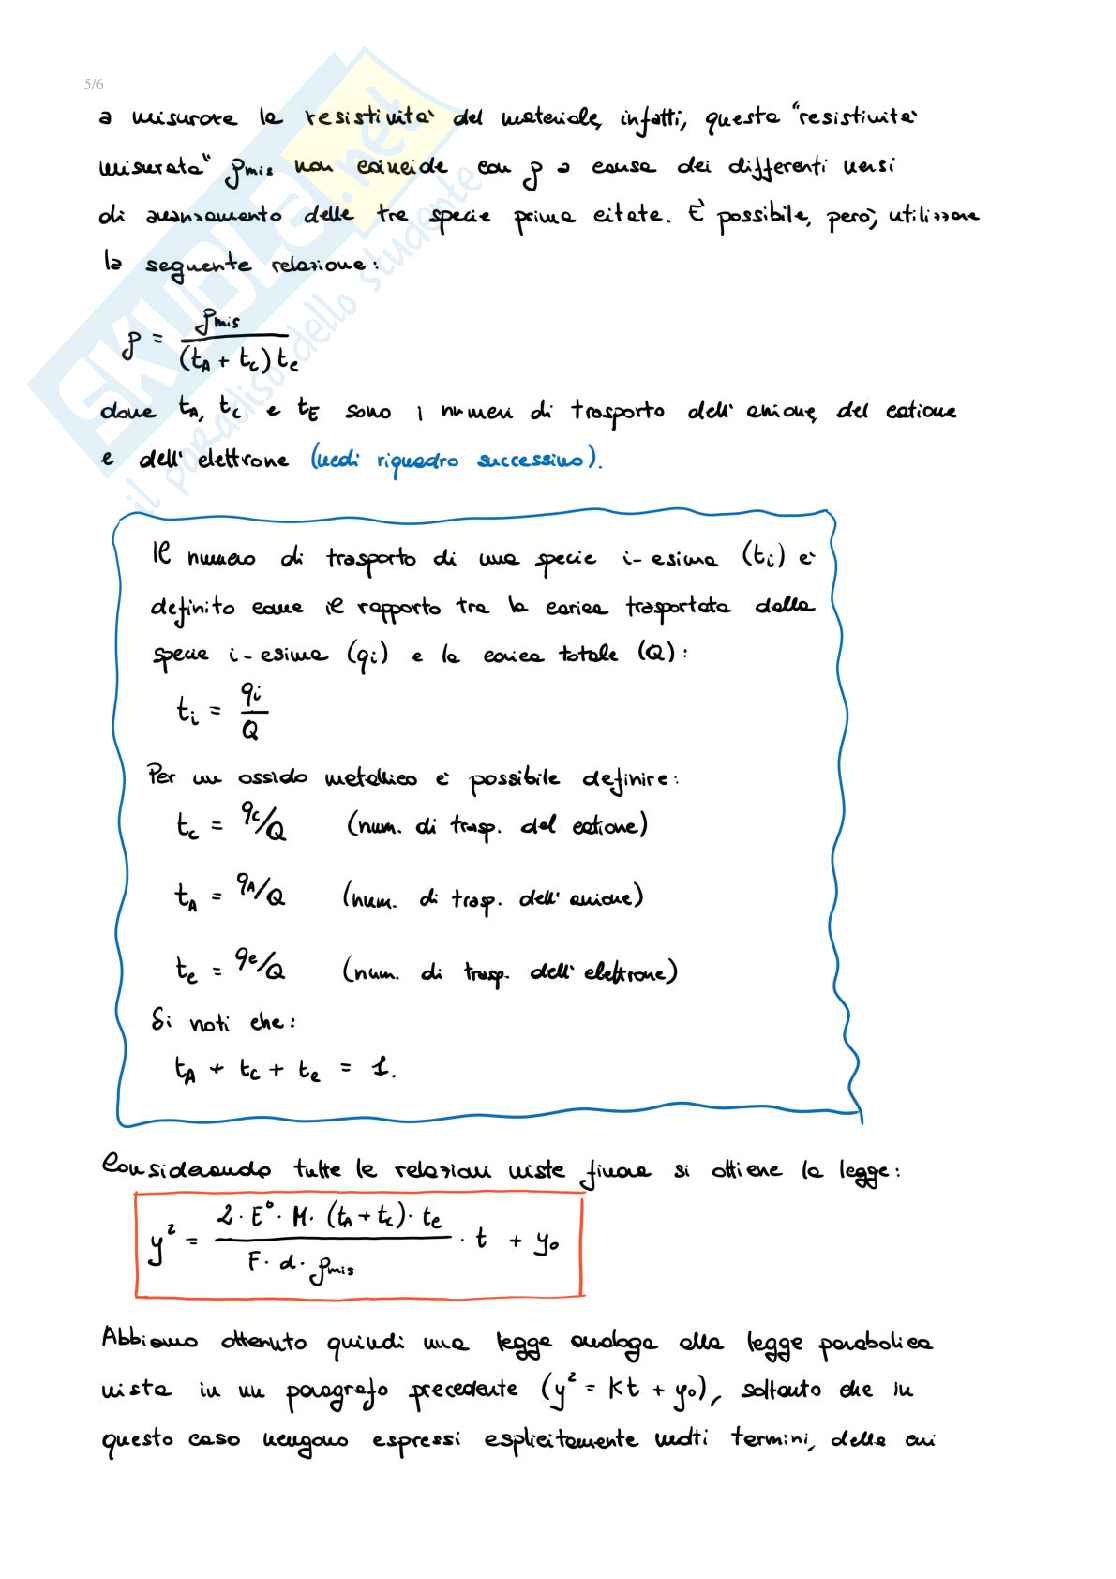 5/6
a misurare la resistività del materiale, infatti, questa "resistività
misurata" ρmis non coincide con ρ a causa dei differenti versi
di avanzamento delle tre specie prima citate. È possibile, però, utilizzare
la seguente relazione:
ρ = ρmis / (tA + tC) te
dove tA, tC e tE sono i numeri di trasporto dell'anione, del catione
e dell'elettrone (vedi riquadro successivo).
Il numero di trasporto di una specie i-esima (ti) è
definito come il rapporto tra la carica trasportata dalla
specie i-esima (qi) e la carica totale (Q):
ti = qi / Q
Per un ossido metallico è possibile definire:
tc = qc/Q (num. di trasp. del catione)
tA = qA/Q (num. di trasp. dell'anione)
te = qe/Q (num. di trasp. dell'elettrone)
Si noti che:
tA + tC + te = 1.
Considerando tutte le relazioni viste finora si ottiene la legge:
y² = 2·E°·M·(tA + tC)·te / F·d·ρmis · t + y₀
Abbiamo ottenuto quindi una legge analoga alla legge parabolica
vista in un paragrafo precedente (y² = Kt + y₀), soltanto che in
questo caso vengono espressi esplicitamente molti termini, delle cui
SKUOLA.net
il paradiso dello studente